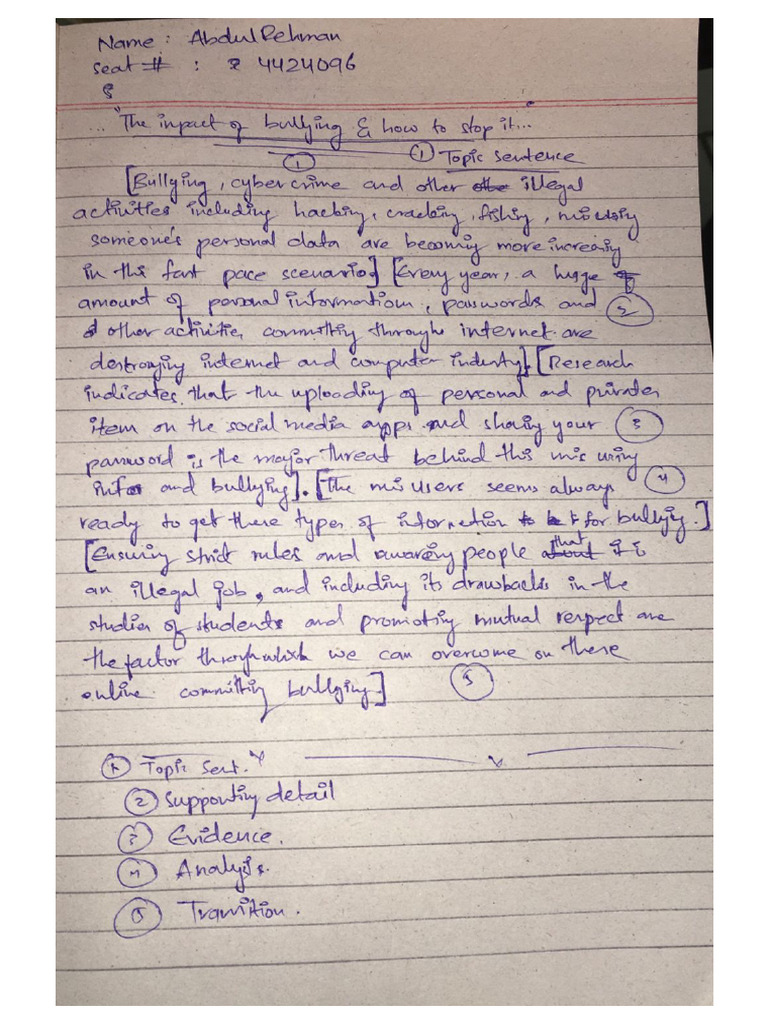 Name : Abdul Rehman
Seat # : 4424096
"The inpact of bullying & how to stop it...
① ① Topic sentence
[Bullying, cyber crime and other illegal
activities including hacking, cracking, fishing, misusing
someone's personal data are becoming more increasing
in this fast pace scenario.] [Every year, a huge
amount of personal information, passwords and ②
other activities committing through internet are
destroying internet and computer industry]. [Research
indicates that the uploading of personal and private
item on the social media apps and sharing your ③
password is the major threat behind this mis using
info and bullying]. [The mis users seems always ④
ready to get these types of information for bullying.]
[Ensuring strict rules and awaring people that it is
an illegal job, and including its drawbacks in the
studies of students and promoting mutual respect are
the factor through which we can overcome on these
online committing bullying] ⑤
① Topic Sent.
② Supporting detail
③ Evidence.
④ Analysis.
⑤ Transition.